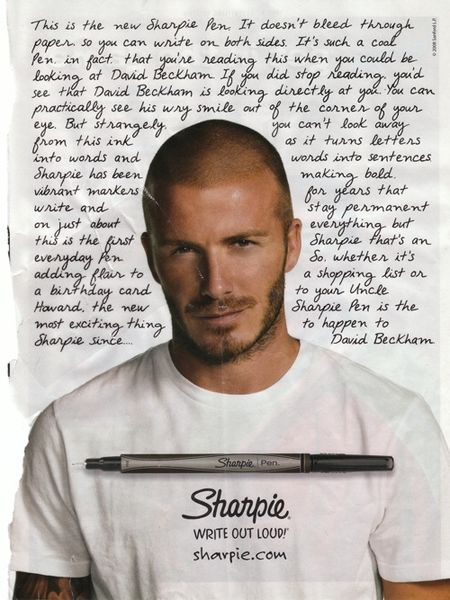 This is the new Sharpie Pen. It doesn't bleed through
paper, so you can write on both sides. It's such a cool
Pen, in fact, that you're reading this when you could be
looking at David Beckham. If you did stop reading, you'd
see that David Beckham is looking directly at you. You can
practically see his wry smile out of the corner of your
eye. But strangely, you can't look away
from this ink as it turns letters
into words and words into sentences.
Sharpie has been making bold,
vibrant markers for years that
write and stay permanent
on just about everything but
this is the first Sharpie that's an
everyday Pen. So, whether it's
adding flair to a shopping list or
a birthday card to your Uncle
Havard, the new Sharpie Pen is the
most exciting thing to happen to
Sharpie since.... David Beckham
© 2008 Sanford L.P.
Sharpie. Pen.
Sharpie.
WRITE OUT LOUD!
sharpie.com